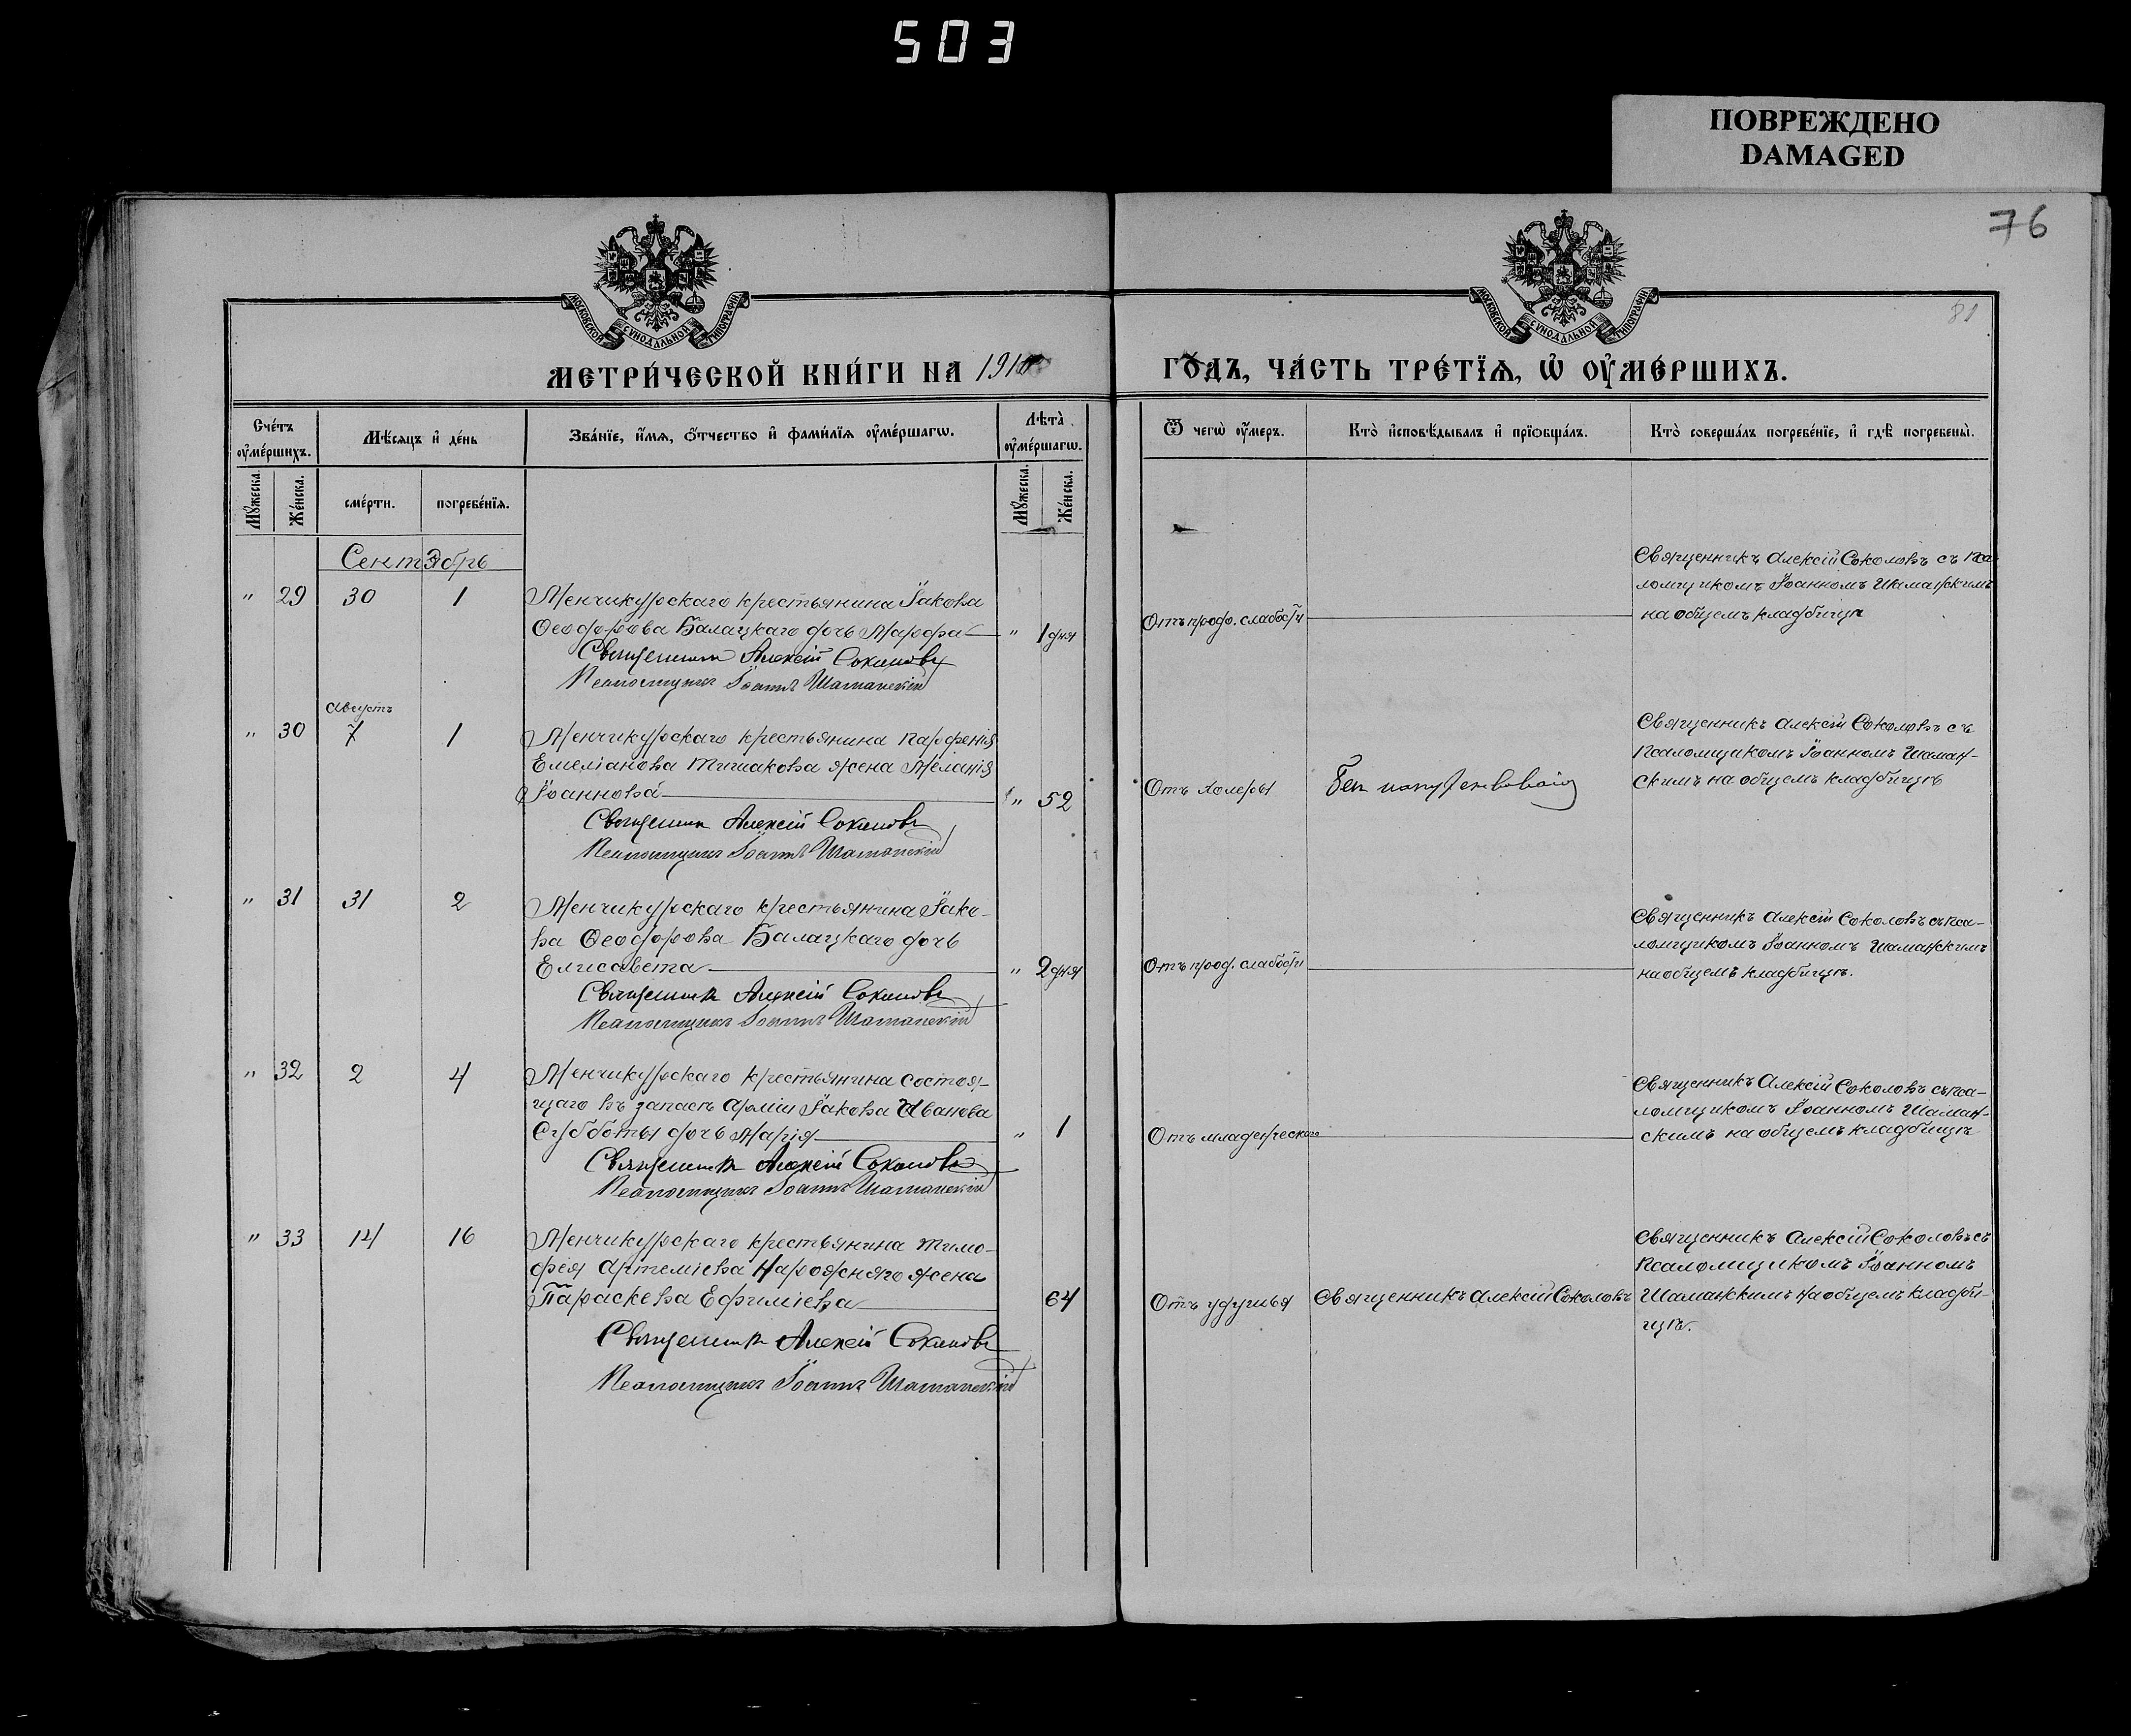 503
ПОВРЕЖДЕНО
DAMAGED
76
81
МОСКОВСКОЙ СѴНОДАЛЬНОЙ ТИПОГРАФІИ
МОСКОВСКОЙ СѴНОДАЛЬНОЙ ТИПОГРАФІИ
МЕТРИ́ЧЕСКОЙ КНИ́ГИ НА 1910
ГО́ДЪ, ЧА́СТЬ ТРЕ́ТЇѦ, Ѡ҆ ОУ҆МЕ́РШИХЪ.
Сче́тъ оу҆ме́ршихъ.
Мѣ́сяцъ и҆ де́нь
Зва́нїе, и҆́мѧ, ѻ҆́тчество и҆ фами́лїѧ оу҆ме́ршагѡ.
Лѣта̀ оу҆ме́ршагѡ.
Ѿ чегѡ̀ оу҆́меръ.
Кто̀ и҆сповѣ́дывалъ и҆ прїѡбща́лъ.
Кто̀ соверша́лъ погребе́нїе, и҆ гдѣ̀ погребены̀.
Мꙋ́жеска.
Же́нска.
сме́рти.
погребе́нїѧ.
Мꙋ́жеска.
Же́нска.
Сентябрь
" 29 30 1 Менчикурскаго крестьянина Іакова
Ѳеодорова Балацкаго дочь Марфа " 1 дня
Священникъ Алексій Соколовъ
Псаломщикъ Іоаннъ Шаманскій
Отъ прод. слабости
Священникъ Алексій Соколовъ съ Пса-
ломщикомъ Іоанномъ Шаманскимъ
на общемъ кладбищѣ
Августъ
" 30 7 1 Менчикурскаго крестьянина Парфенія
Емеліанова Тишакова жена Меланія
Іоаннова " 52
Священникъ Алексій Соколовъ
Псаломщикъ Іоаннъ Шаманскій
Отъ холеры
Без напутствованія
Священникъ Алексій Соколовъ съ
Псаломщикомъ Іоанномъ Шаман-
скимъ на общемъ кладбищѣ
" 31 31 2 Менчикурскаго крестьянина Іако-
ва Ѳеодорова Балацкаго дочь
Елисавета " 2 дня
Священникъ Алексій Соколовъ
Псаломщикъ Іоаннъ Шаманскій
Отъ прод. слабости
Священникъ Алексій Соколовъ съ Пса-
ломщикомъ Іоанномъ Шаманскимъ
на общемъ кладбищѣ.
" 32 2 4 Менчикурскаго крестьянина состоя-
щаго въ запасѣ арміи Іакова Иванова
Субботы дочь Марія " 1
Священникъ Алексій Соколовъ
Псаломщикъ Іоаннъ Шаманскій
Отъ младенческаго
Священникъ Алексій Соколовъ съ Пса-
ломщикомъ Іоанномъ Шаман-
скимъ на общемъ кладбищѣ
" 33 14 16 Менчикурскаго крестьянина Тимо-
фея Артеміева Нарожняго жена
Параскева Ефиміева 64
Священникъ Алексій Соколовъ
Псаломщикъ Іоаннъ Шаманскій
Отъ удушья
Священникъ Алексій Соколовъ
Священникъ Алексій Соколовъ съ
Псаломщикомъ Іоанномъ
Шаманскимъ на общемъ кладби-
щѣ.